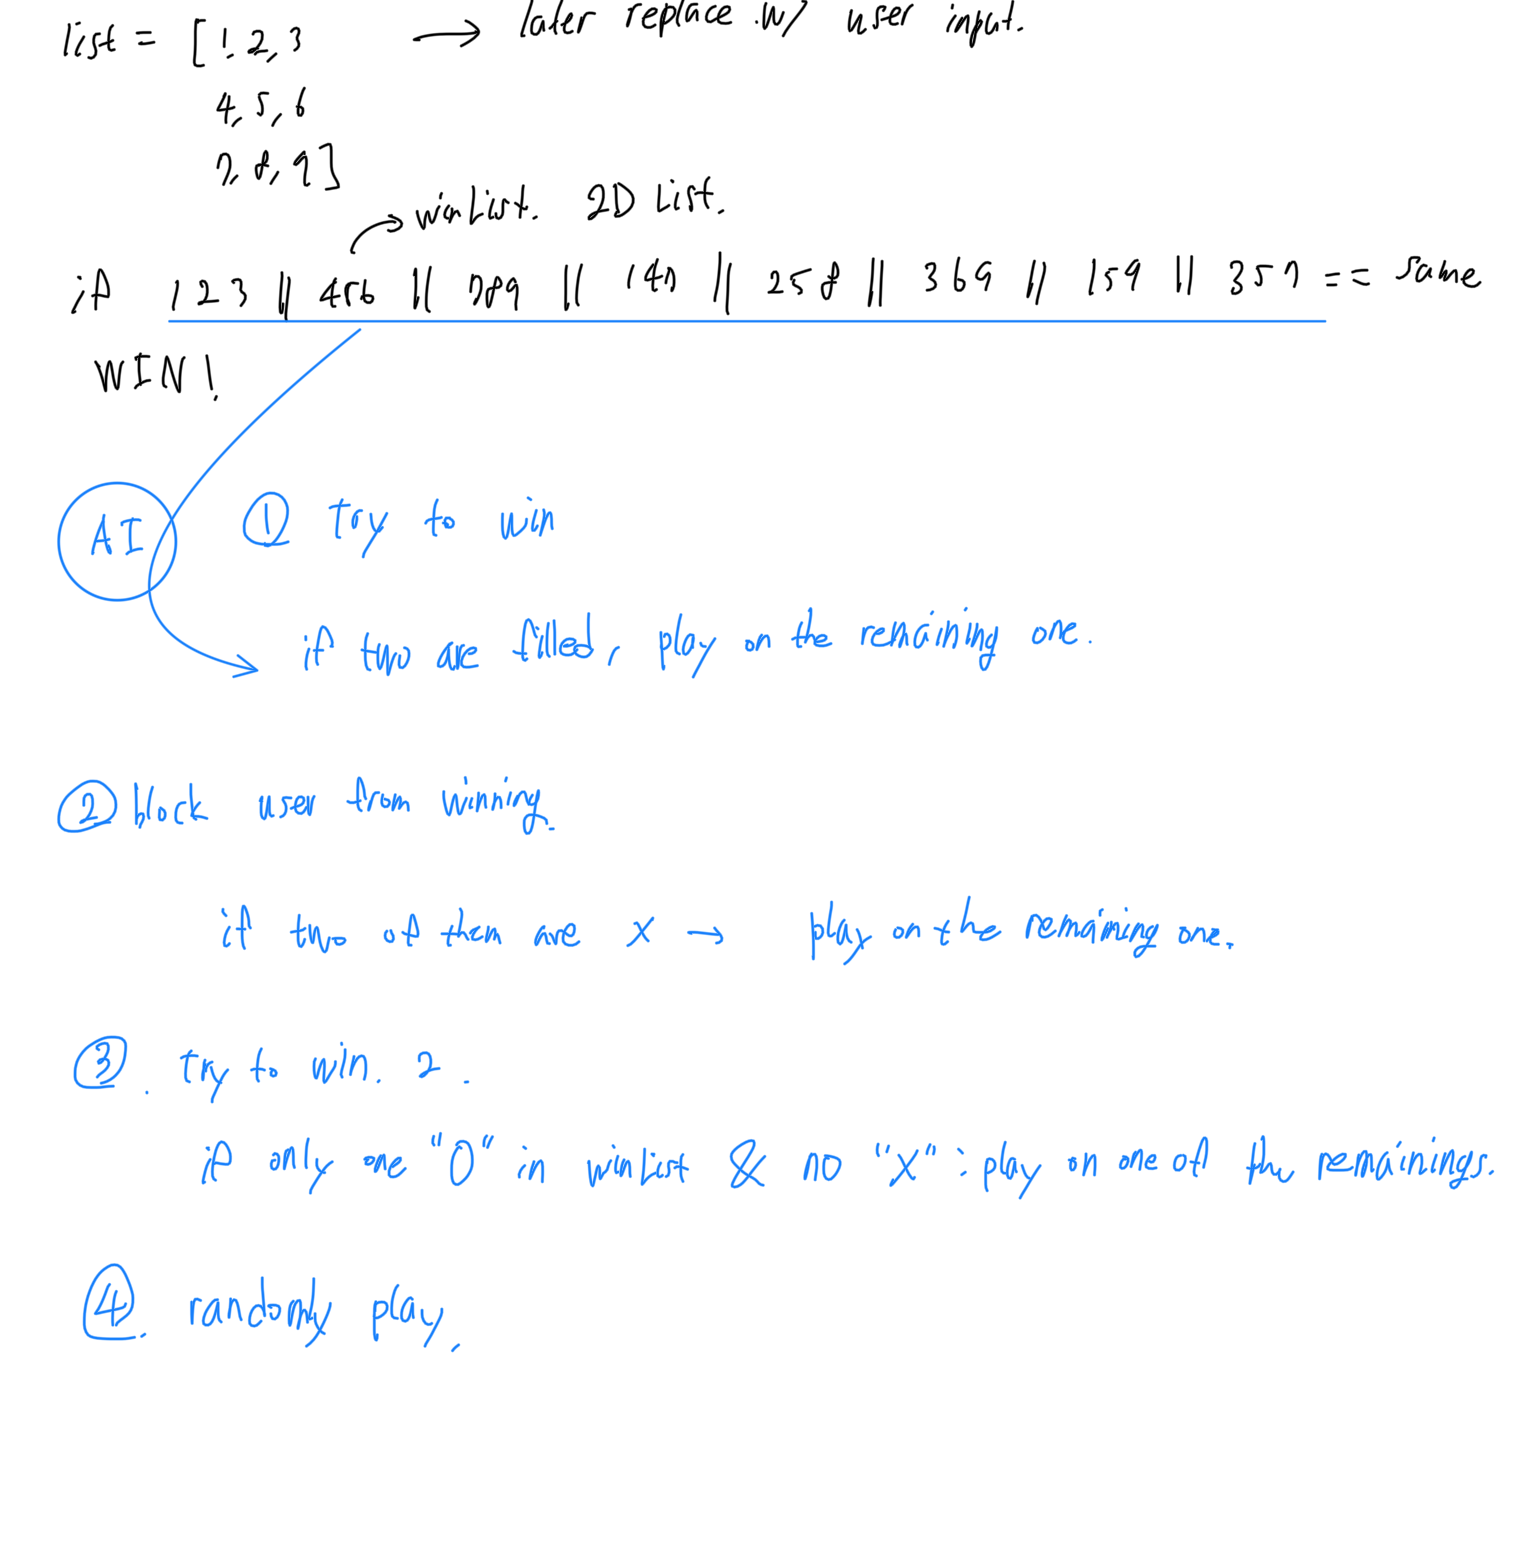 list = [1, 2, 3 → later replace w/ user input.
4, 5, 6
7, 8, 9]
winList. 2D List.
if 123 || 456 || 789 || 147 || 258 || 369 || 159 || 357 == same
WIN!
AI ① Try to win
if two are filled, play on the remaining one.
② block user from winning.
if two of them are X → play on the remaining one.
③. try to win. 2.
if only one "O" in winList & no "X" : play on one of the remainings.
④. randomly play.